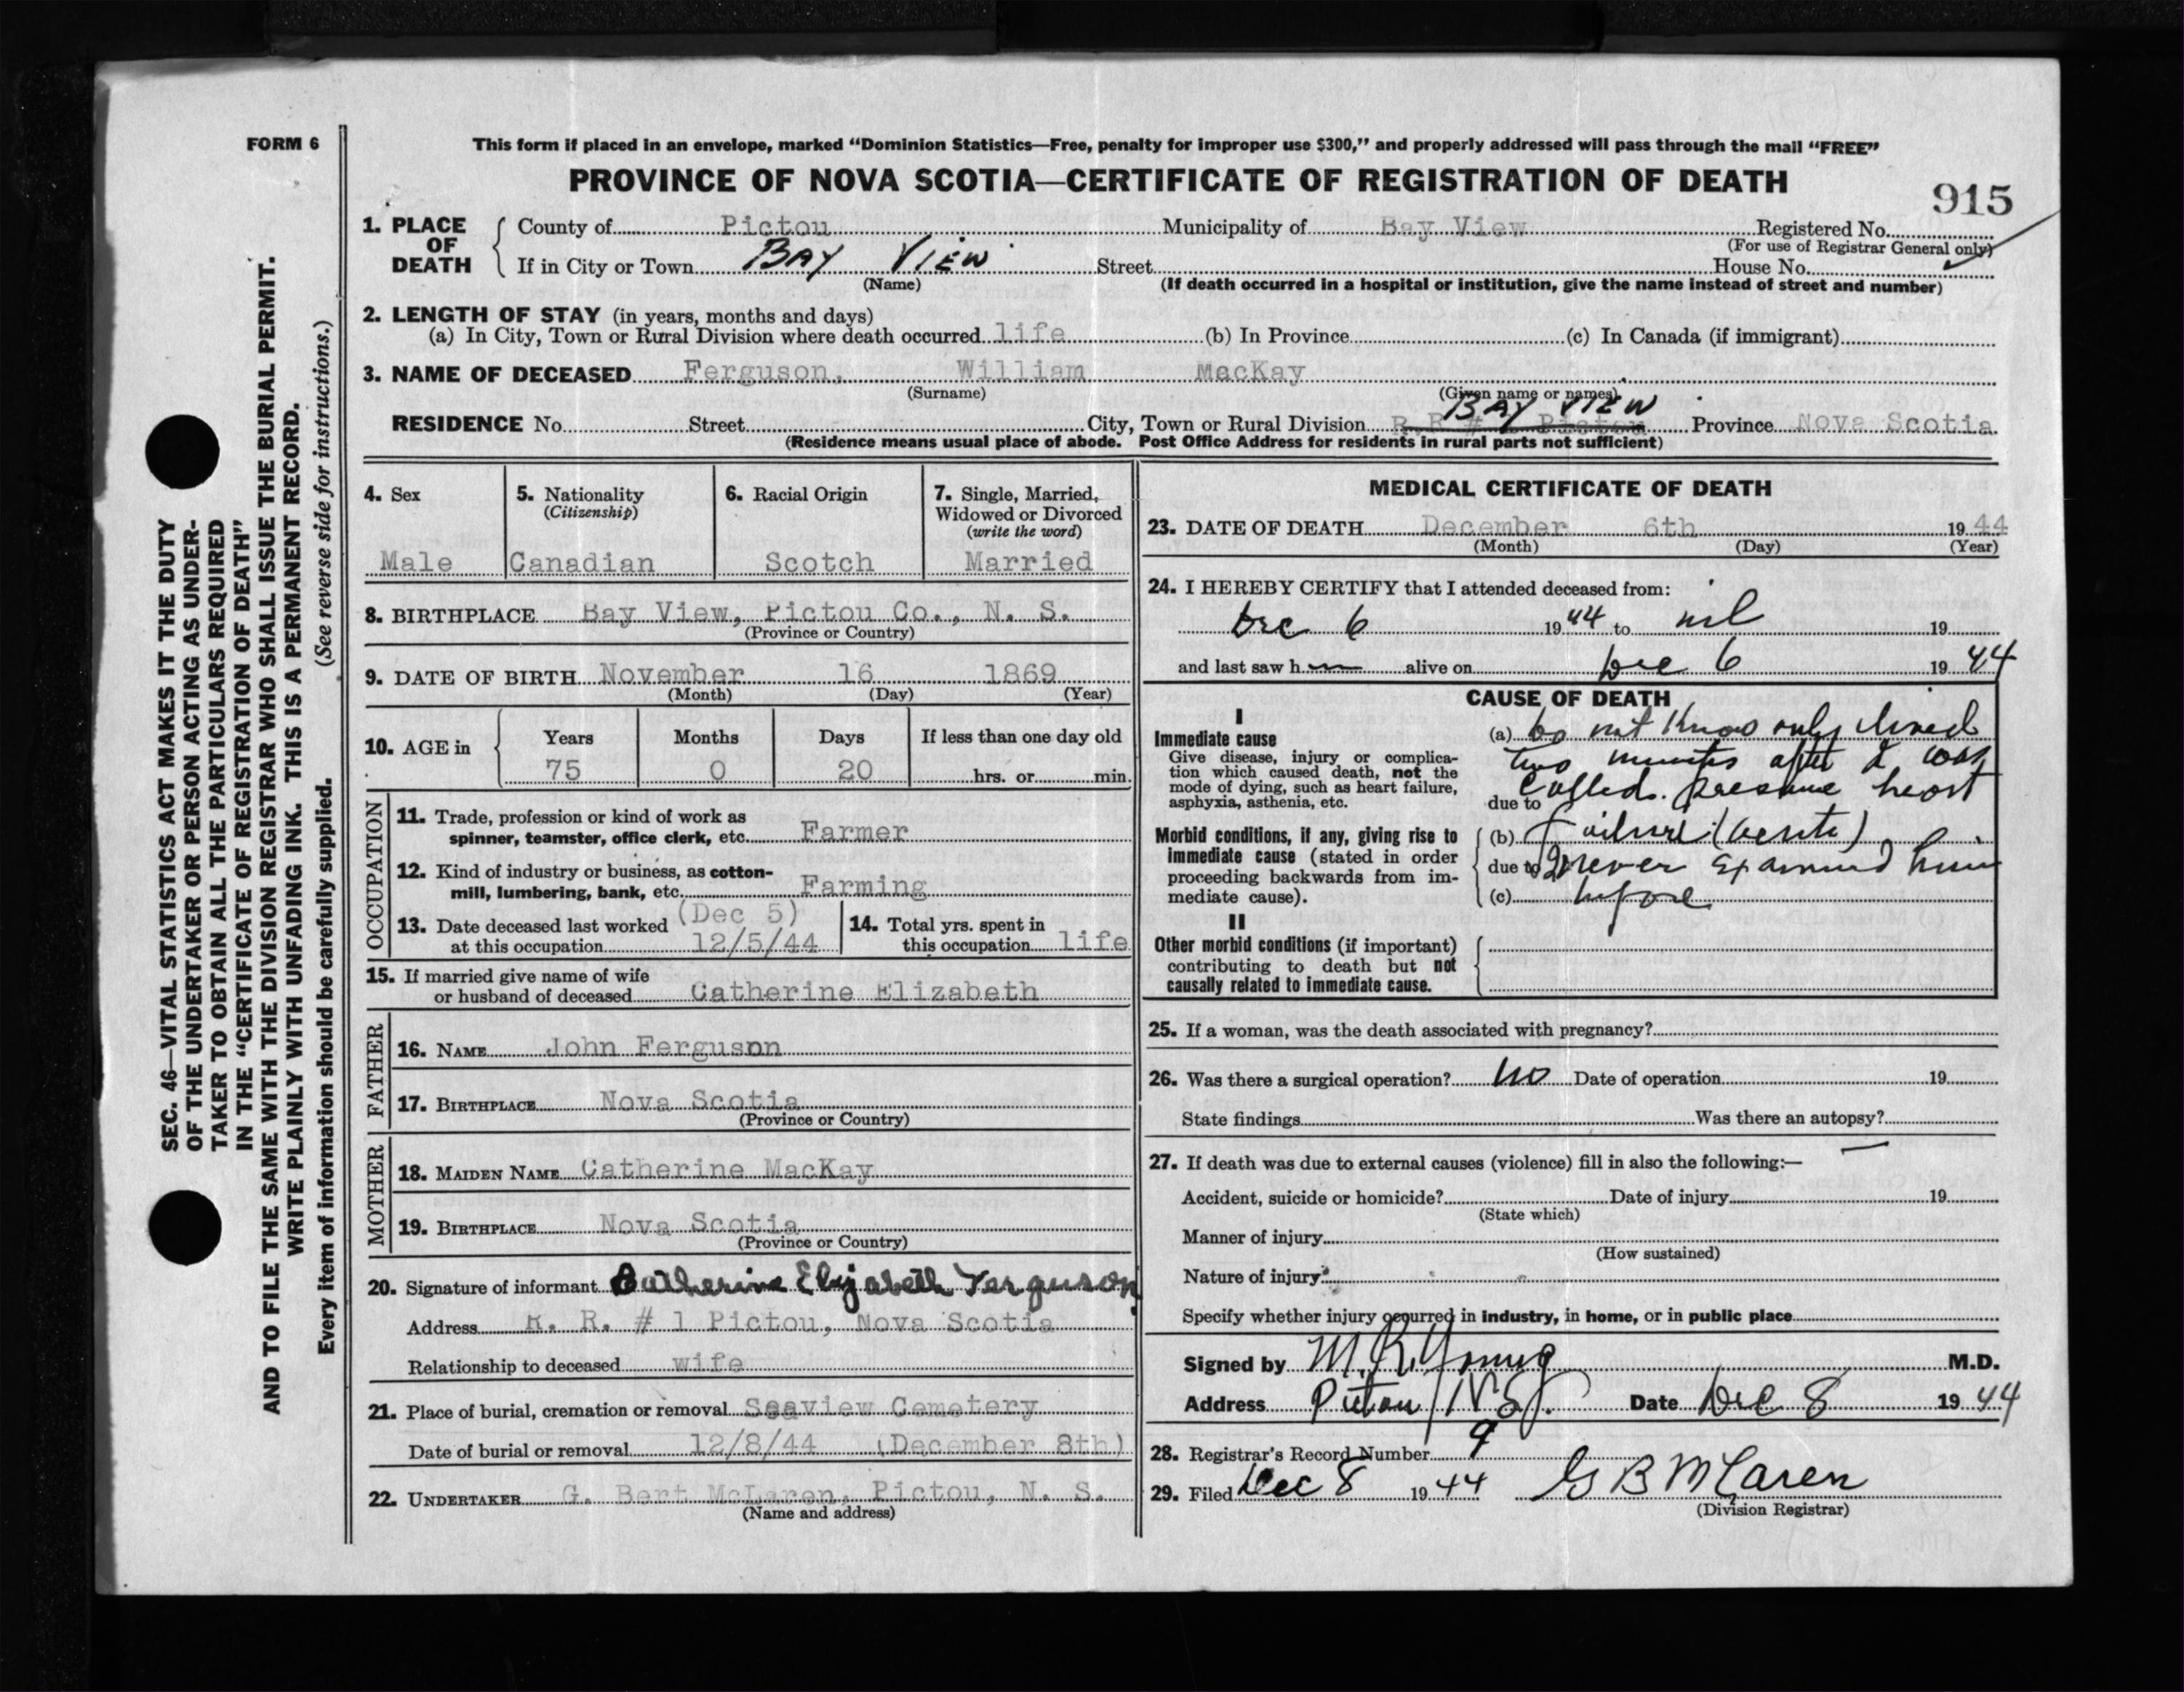 FORM 6
This form if placed in an envelope, marked “Dominion Statistics—Free, penalty for improper use $300,” and properly addressed will pass through the mail “FREE”
PROVINCE OF NOVA SCOTIA—CERTIFICATE OF REGISTRATION OF DEATH
915
1. PLACE OF DEATH
County of Pictou Municipality of Bay View Registered No.
(For use of Registrar General only)
If in City or Town BAY VIEW Street House No.
(Name) (If death occurred in a hospital or institution, give the name instead of street and number)
2. LENGTH OF STAY (in years, months and days)
(a) In City, Town or Rural Division where death occurred life (b) In Province (c) In Canada (if immigrant)
3. NAME OF DECEASED Ferguson, William MacKay
(Surname) (Given name or names)
BAY VIEW
RESIDENCE No. Street City, Town or Rural Division R.R # 1 Pictou Province Nova Scotia
(Residence means usual place of abode. Post Office Address for residents in rural parts not sufficient)
4. Sex
Male
5. Nationality
(Citizenship)
Canadian
6. Racial Origin
Scotch
7. Single, Married,
Widowed or Divorced
(write the word)
Married
8. BIRTHPLACE Bay View, Pictou Co., N. S.
(Province or Country)
9. DATE OF BIRTH November 16 1869
(Month) (Day) (Year)
10. AGE in
Years Months Days If less than one day old
75 0 20 hrs. or min.
OCCUPATION
11. Trade, profession or kind of work as
spinner, teamster, office clerk, etc. Farmer
12. Kind of industry or business, as cotton-
mill, lumbering, bank, etc. Farming
13. Date deceased last worked (Dec 5)
at this occupation 12/5/44
14. Total yrs. spent in
this occupation life
15. If married give name of wife
or husband of deceased Catherine Elizabeth
FATHER
16. NAME John Ferguson
17. BIRTHPLACE Nova Scotia
(Province or Country)
MOTHER
18. MAIDEN NAME Catherine MacKay
19. BIRTHPLACE Nova Scotia
(Province or Country)
20. Signature of informant Catherine Elizabeth Ferguson
Address R. R. # 1 Pictou, Nova Scotia
Relationship to deceased wife
21. Place of burial, cremation or removal Seaview Cemetery
Date of burial or removal 12/8/44 (December 8th)
22. UNDERTAKER G. Bert McLaren, Pictou, N. S.
(Name and address)
MEDICAL CERTIFICATE OF DEATH
23. DATE OF DEATH December 6th 1944
(Month) (Day) (Year)
24. I HEREBY CERTIFY that I attended deceased from:
Dec 6 1944 to nil 19
and last saw h m alive on Dec 6 1944
CAUSE OF DEATH
I
Immediate cause
Give disease, injury or complica-
tion which caused death, not the
mode of dying, such as heart failure,
asphyxia, asthenia, etc.
(a) Do not know only lived
two minutes after I was
due to called. Presume heart
Morbid conditions, if any, giving rise to
immediate cause (stated in order
proceeding backwards from im-
mediate cause).
(b) Failure (acute)
due to I never examined him
(c) before
II
Other morbid conditions (if important)
contributing to death but not
causally related to immediate cause.
25. If a woman, was the death associated with pregnancy?
26. Was there a surgical operation? no Date of operation 19
State findings Was there an autopsy?
27. If death was due to external causes (violence) fill in also the following:—
Accident, suicide or homicide? Date of injury 19
(State which)
Manner of injury
(How sustained)
Nature of injury
Specify whether injury occurred in industry, in home, or in public place
Signed by M. R. Young M.D.
Address Pictou N.S. Date Dec 8 1944
28. Registrar's Record Number 9
29. Filed Dec 8 1944 G B McLaren
(Division Registrar)
SEC. 46—VITAL STATISTICS ACT MAKES IT THE DUTY
OF THE UNDERTAKER OR PERSON ACTING AS UNDER-
TAKER TO OBTAIN ALL THE PARTICULARS REQUIRED
IN THE “CERTIFICATE OF REGISTRATION OF DEATH”
AND TO FILE THE SAME WITH THE DIVISION REGISTRAR WHO SHALL ISSUE THE BURIAL PERMIT.
WRITE PLAINLY WITH UNFADING INK. THIS IS A PERMANENT RECORD.
Every item of information should be carefully supplied. (See reverse side for instructions.)